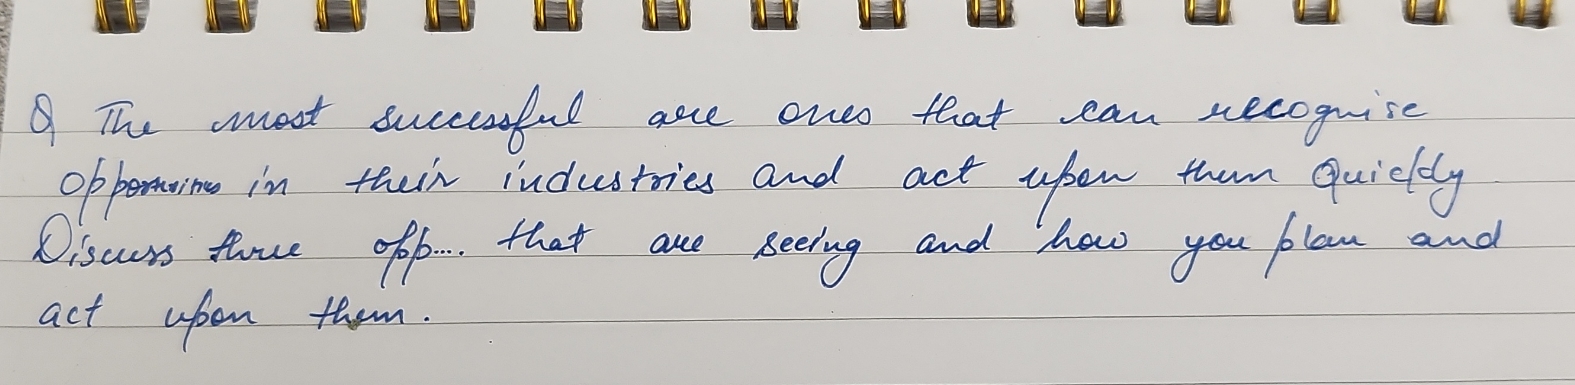 Q The most successful are ones that can recognise
in their industries and act upon them Quickly
Discuss three opp.... that are seeing and how you plan and
act upon them.